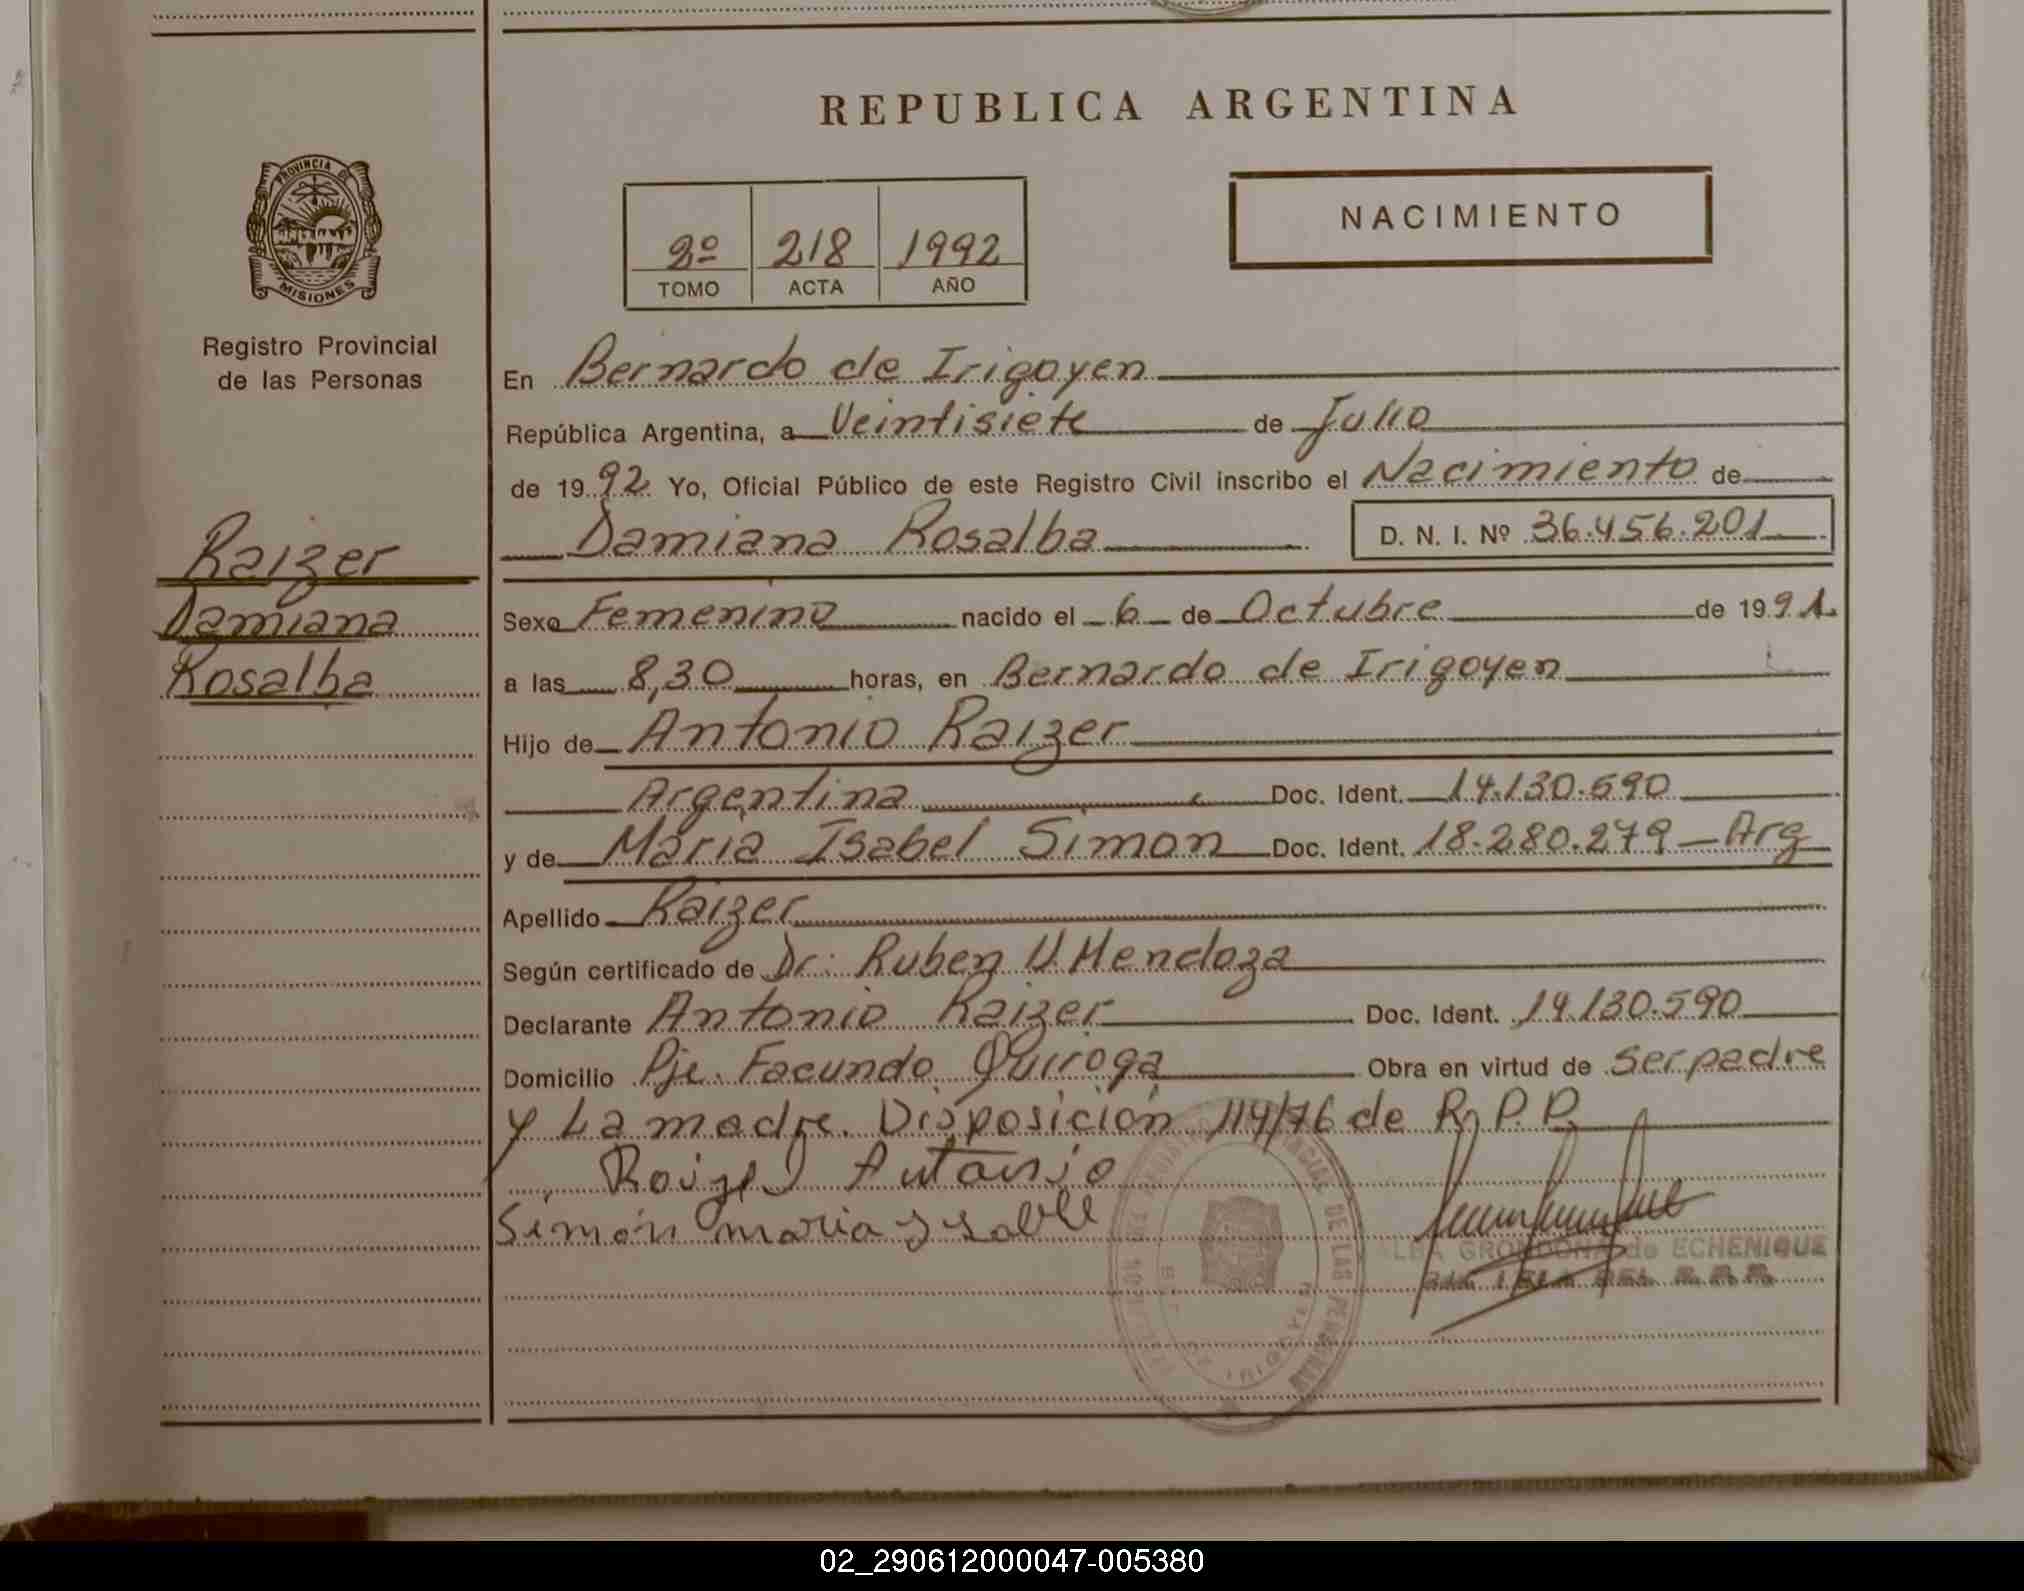 REPUBLICA ARGENTINA
PROVINCIA DE
MISIONES
Registro Provincial
de las Personas
Raizer
Damiana
Rosalba
2º 218 1992
TOMO ACTA AÑO
NACIMIENTO
En Bernardo de Irigoyen
República Argentina, a Veintisiete de Julio
de 1992 Yo, Oficial Público de este Registro Civil inscribo el Nacimiento de
Damiana Rosalba D. N. I. Nº 36.456.201
Sexo Femenino nacido el 6 de Octubre de 1991
a las 8,30 horas, en Bernardo de Irigoyen
Hijo de Antonio Raizer
Argentina Doc. Ident. 14.130.590
y de Maria Isabel Simon Doc. Ident. 18.280.279 - Arg
Apellido Raizer
Según certificado de Dr: Ruben V. Mendoza
Declarante Antonio Raizer Doc. Ident. 14.130.590
Domicilio Pje. Facundo Quiroga Obra en virtud de ser padre
y La madre. Disposición 114/76 de R. P. P.
Antonio
Simón maria
GRONDONA de ECHENIQUE
02_290612000047-005380